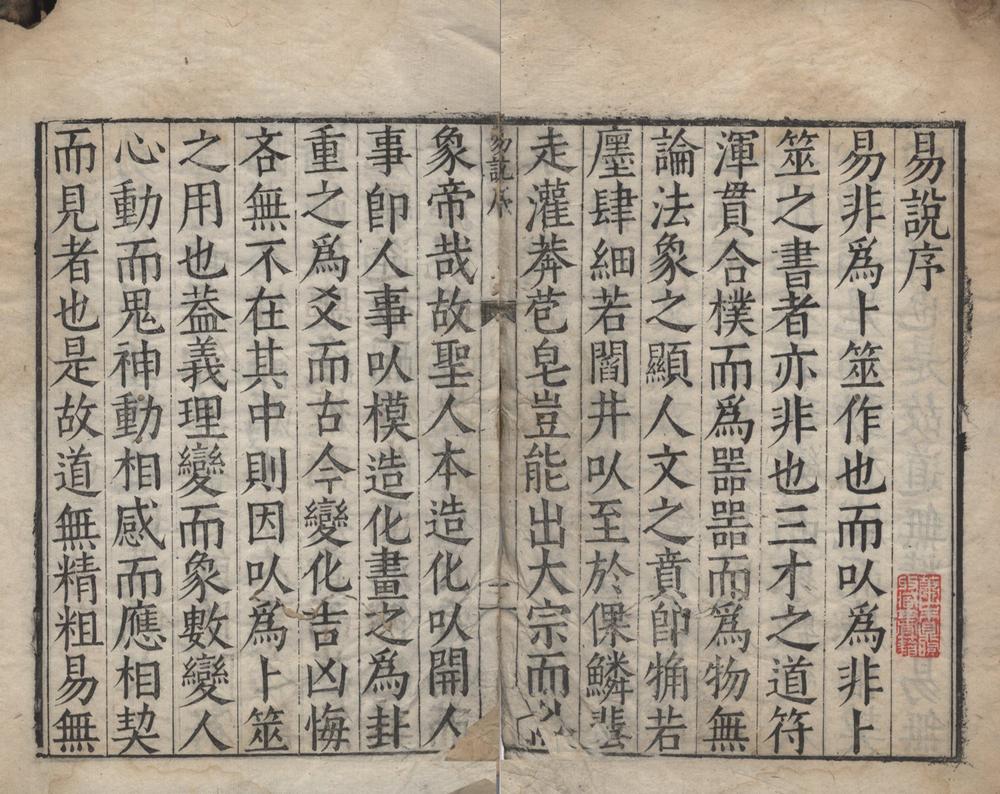 易說序
易非爲卜筮作也而以爲非卜
筮之書者亦非也三才之道符
渾貫合樸而爲噐噐而爲物無
論法象之顯人文之賁卽觕若
廛肆細若閻井以至於倮鱗蜚
走灌莽苞皂豈能出大宗而
易說序
象帝哉故聖人本造化以開人
事卽人事以模造化畫之爲卦
重之爲爻而古今變化吉凶悔
吝無不在其中則因以爲卜筮
之用也葢義理變而象數變人
心動而鬼神動相感而應相契
而見者也是故道無精粗易無